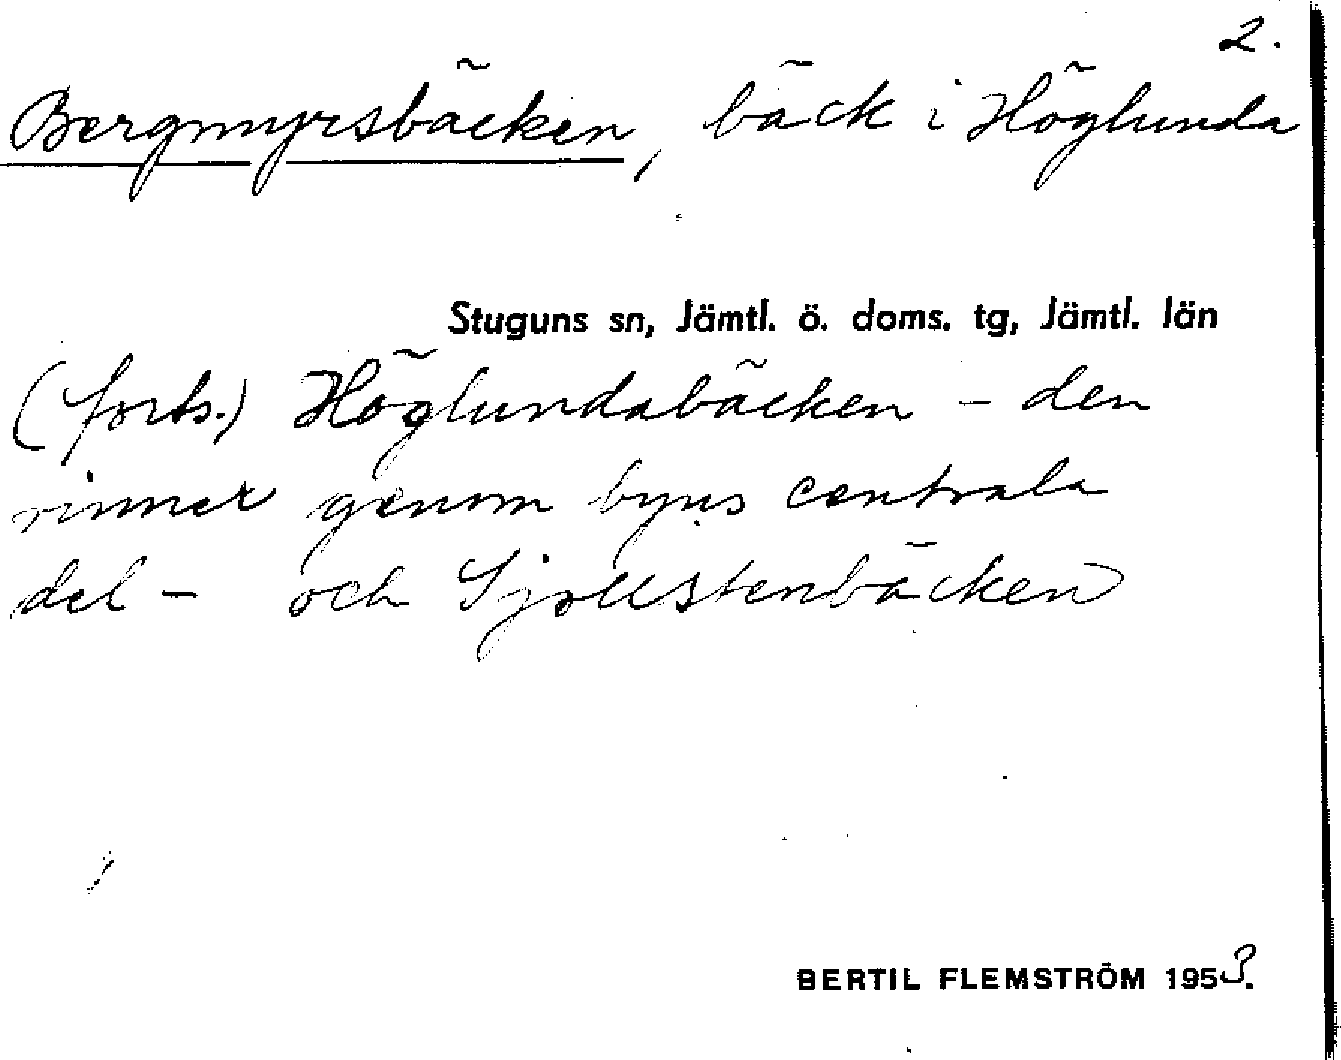 2.
Bergmyrsbäcken, bäck i Höglunda
Stuguns sn, Jämtl. ö. doms. tg, Jämtl. län
(forts.) Höglundabäcken – den
rinner genom byns centrala
del – och Sjollstenbäcken
BERTIL FLEMSTRÖM 1953.